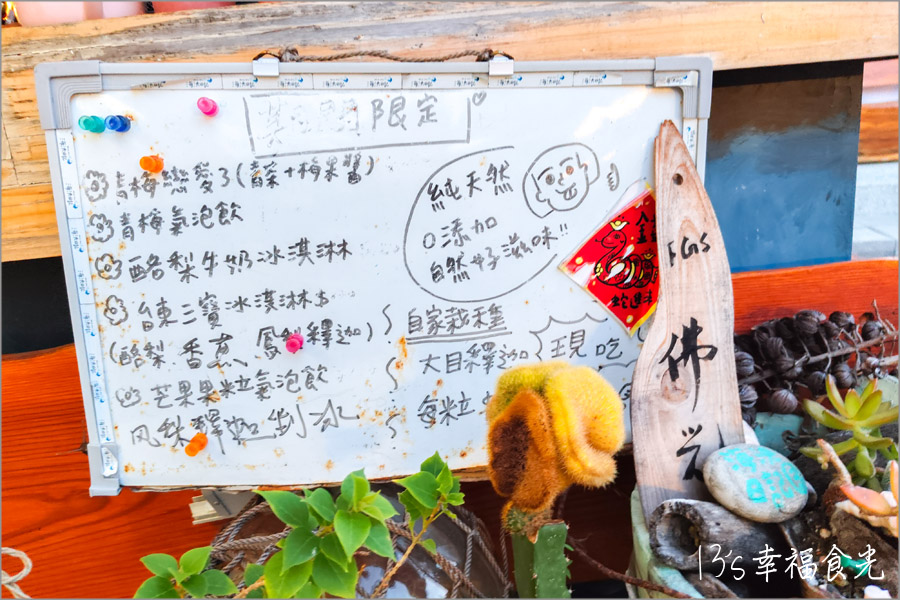 期間限定
青梅戀愛了(蘇打+梅果醬)
青梅氣泡飲
酪梨牛奶冰淇淋
台東三寶冰淇淋
(酪梨 香蕉 鳳梨釋迦)
芒果果粒氣泡飲
鳳梨釋迦刨冰
純天然
0添加
自然好滋味!!
自家栽種
大目釋迦 現吃
每粒
佛
13's幸福食光